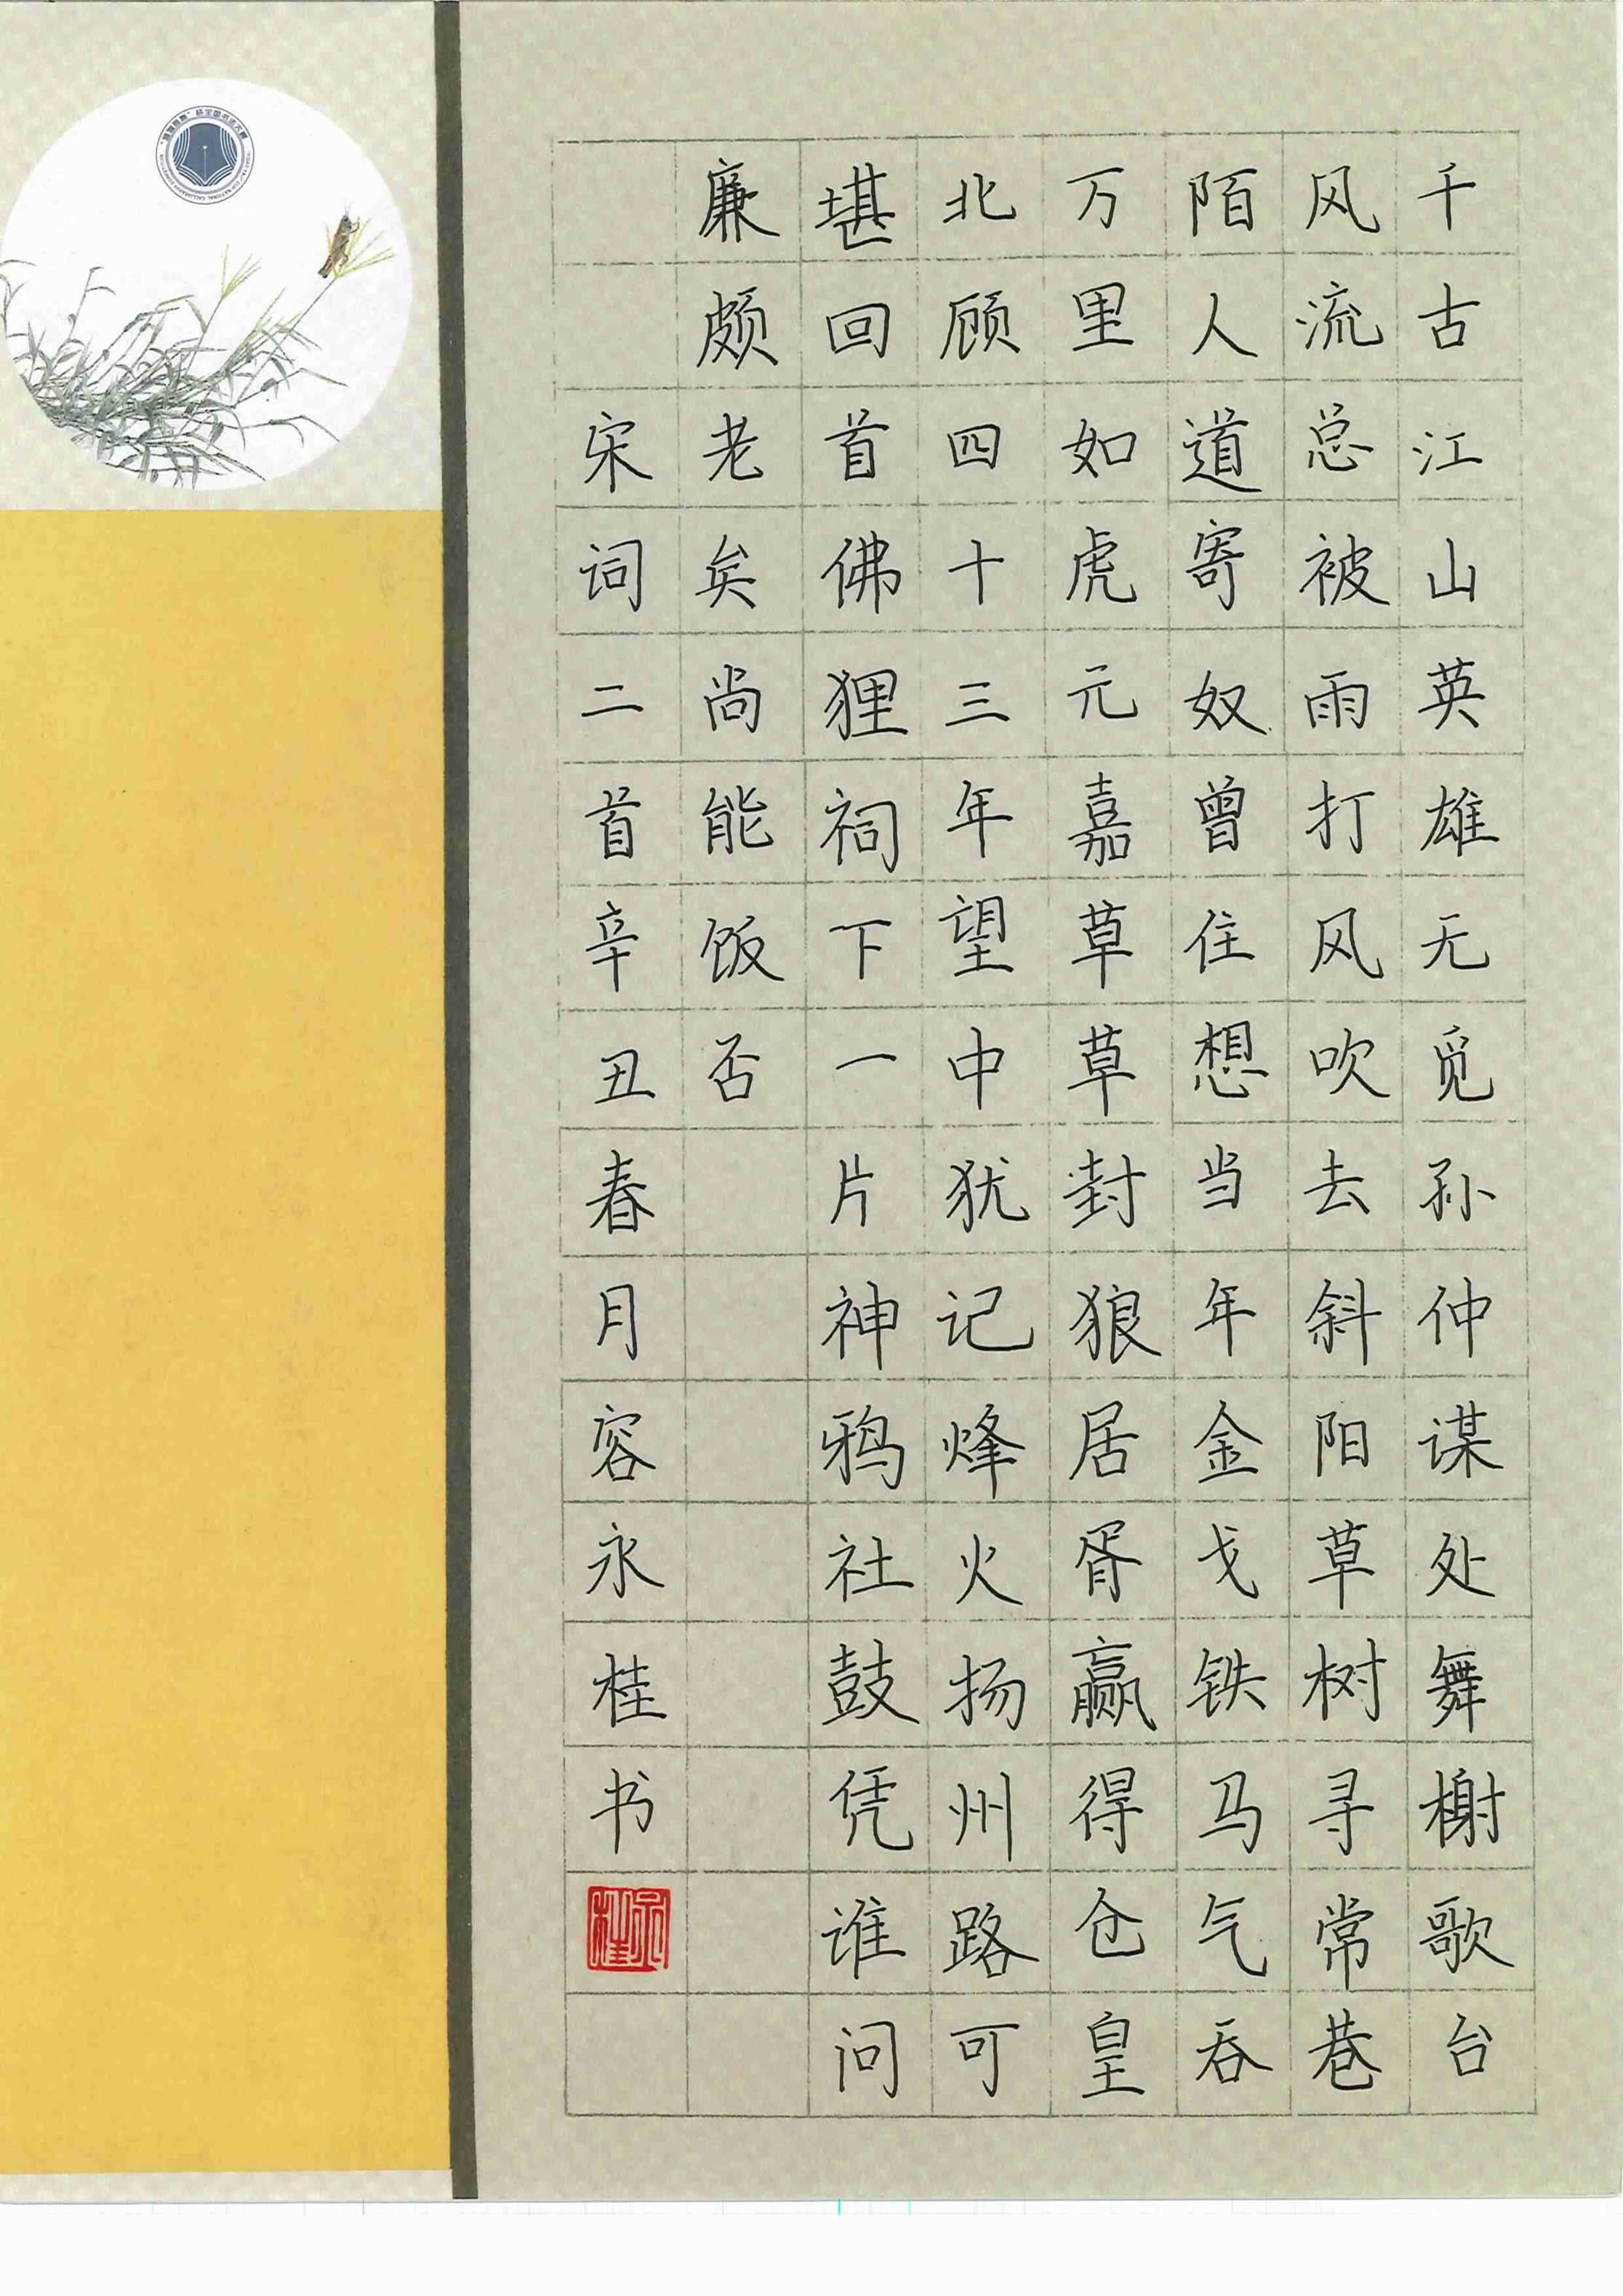 千古江山英雄无觅孙仲谋处舞榭歌台
风流总被雨打风吹去斜阳草树寻常巷
陌人道寄奴曾住想当年金戈铁马气吞
万里如虎元嘉草草封狼居胥赢得仓皇
北顾四十三年望中犹记烽火扬州路可
堪回首佛狸祠下一片神鸦社鼓凭谁问
廉颇老矣尚能饭否
宋词二首辛丑春月容永桂书
永桂